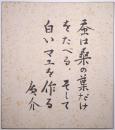 蚕は桑の葉だけ
をたべる、そして
白いマユを作る